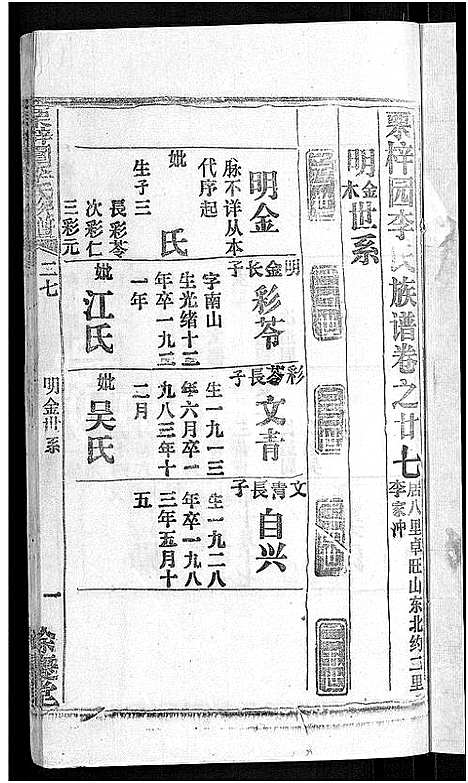 栗梓园李氏族谱卷之廿七
居八里卓旺山东北约二里
李家冲
明金木世系
明金
脉不详从本
代序起
妣 氏
生子三
長彩苓
次彩仁
三彩元
明金长子
彩苓
字南山
生光绪十三
年卒一九三
一年
妣江氏
彩苓長子
文青
生一九一三
年六月卒一
九八三年十
二月
妣吴氏
文青長子
自兴
生一九二八
年卒一九八
三年五月十
五
二七
明金世系
一